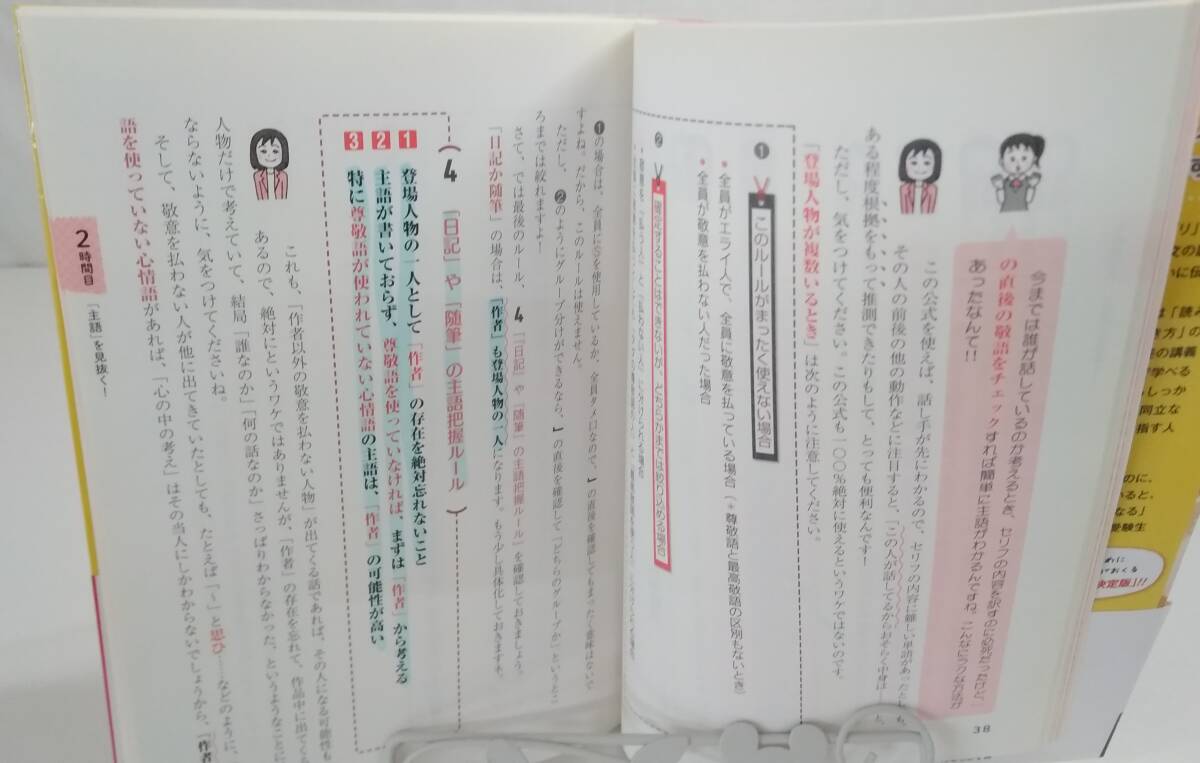 今までは誰が話しているのか考えるとき、セリフの内容を訳すのに必死だったけど、
の直後の敬語をチェックすれば簡単に主語がわかるんですね。こんな
あったなんて!!
この公式を使えば、話し手が先にわかるので、セリフの内容に難しい単語があったとしても、
その人の前後の他の動作などに注目すると、「この人が話してるからおそらく中身は……」と、
ある程度根拠をもって推測できたりもして、とっても便利なんです!
ただし、気をつけてください。この公式も一〇〇%絶対に使えるというワケではないのです。
「登場人物が複数いるとき」は次のように注意してください。
❶ このルールがまったく使えない場合
• 全員がエライ人で、全員に敬意を払っている場合(+尊敬語と最高敬語の区別もないとき)
• 全員が敬意を払わない人だった場合
❷ 確定することはできないが、どちらかまでは絞り込める場合
38
❶の場合は、全員に
を使用しているか、全員タメ口なので、」の直後を確認してもまったく意味はないで
すよね。だから、このルールは使えません。
ただし、❷のようにグループ分けができるなら、」の直後を確認して「どちらのグループか」というとこ
ろまでは絞れますよ!
さて、では最後のルール、4「『日記』や『随筆』の主語把握ルール」を確認しておきましょう。
「日記か随筆」の場合は、「作者」も登場人物の一人になります。もう少し具体化しておきますも、
4 「日記」や「随筆」の主語把握ルール
1 登場人物の一人として「作者」の存在を絶対忘れないこと
2 主語が書いておらず、尊敬語を使っていなければ、まずは「作者」から考える
3 特に尊敬語が使われていない心情語の主語は、「作者」の可能性が高い
これも、「作者以外の敬意を払わない人物」が出てくる話であれば、その人になる可能性も
あるので、絶対にというワケではありませんが、「作者」の存在を忘れて、作品中に出てくる
人物だけで考えていて、結局「誰なのか」「何の話なのか」さっぱりわからなかった、というようなことに
ならないように、気をつけてくださいね。
そして、敬意を払わない人が他に出てきていたとしても、たとえば「〜」と思ひ……などのように、
語を使っていない心情語があれば、「心の中の考え」はその当人にしかわからないでしょうから、「作者
2時間目
「主語」を見抜く!
リ」
文の
いに伝
は「読み
き方」の
の講義
学べる
しっか
同立な
指す人
のに、
いると、
なる」
受験生
めに
おくる
決定版」!!